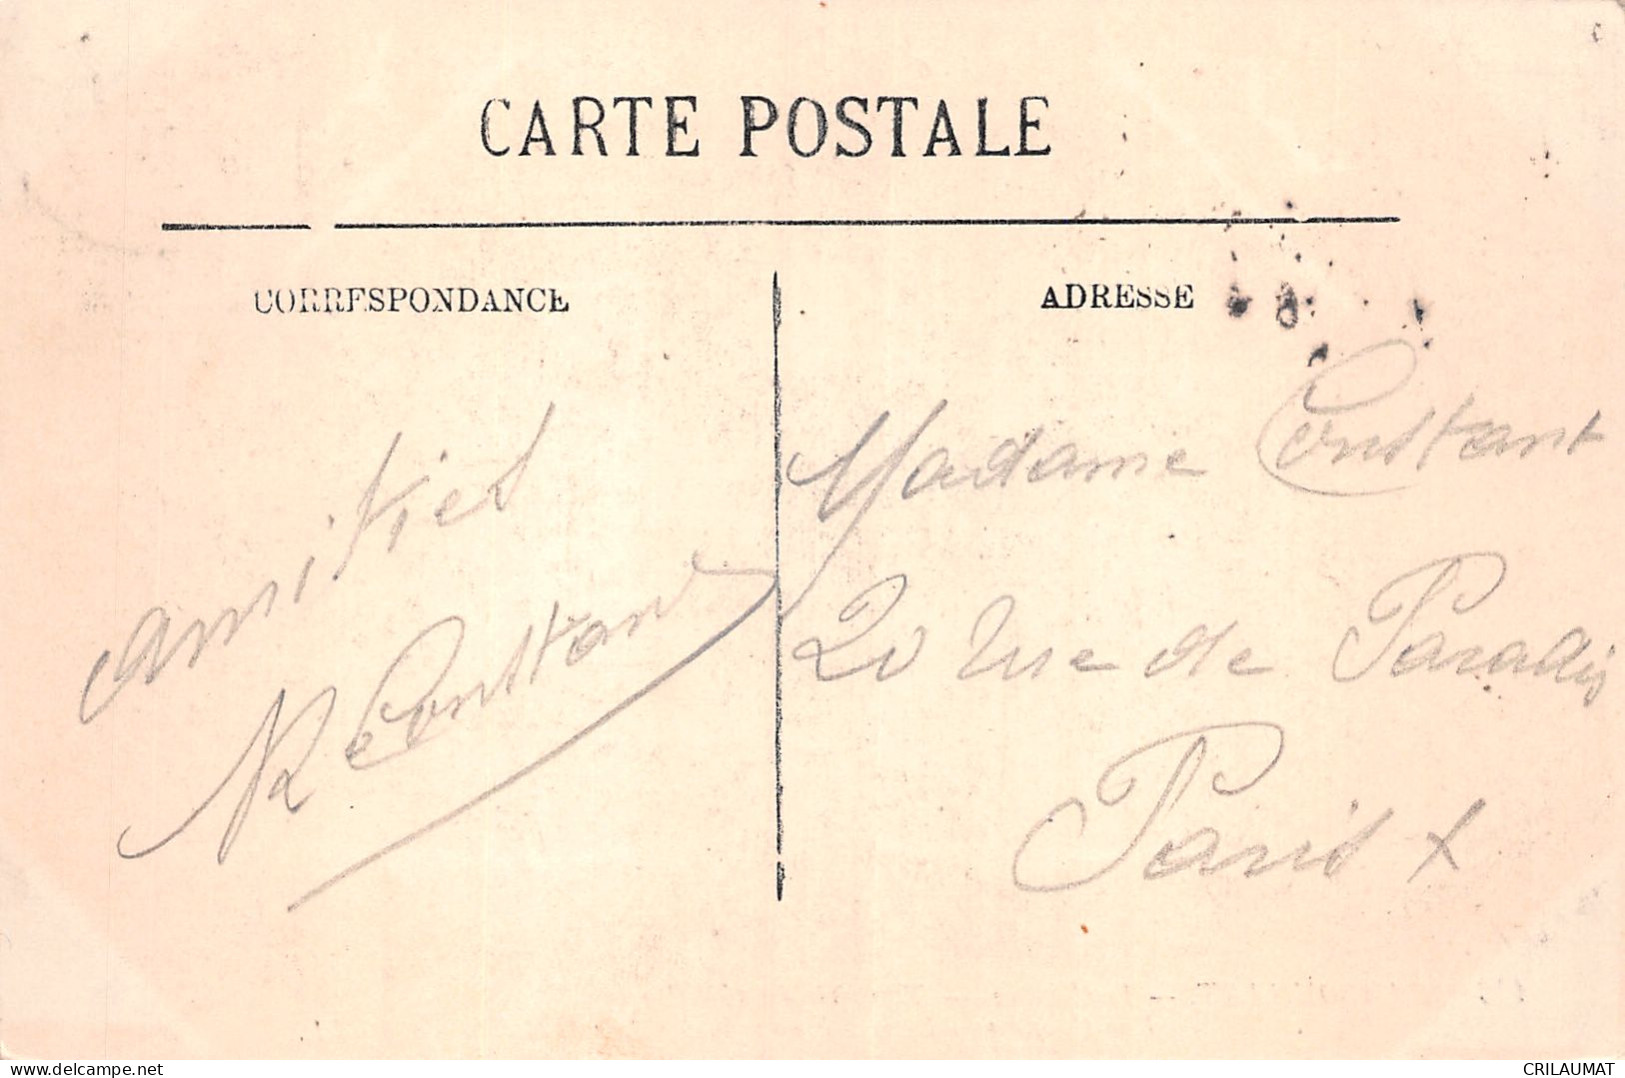 CARTE POSTALE
CORRESPONDANCE
ADRESSE
amitiés
R Constant
Madame Constant
20 rue de Paradis
Paris X
delcampe.net
CRILAUMAT